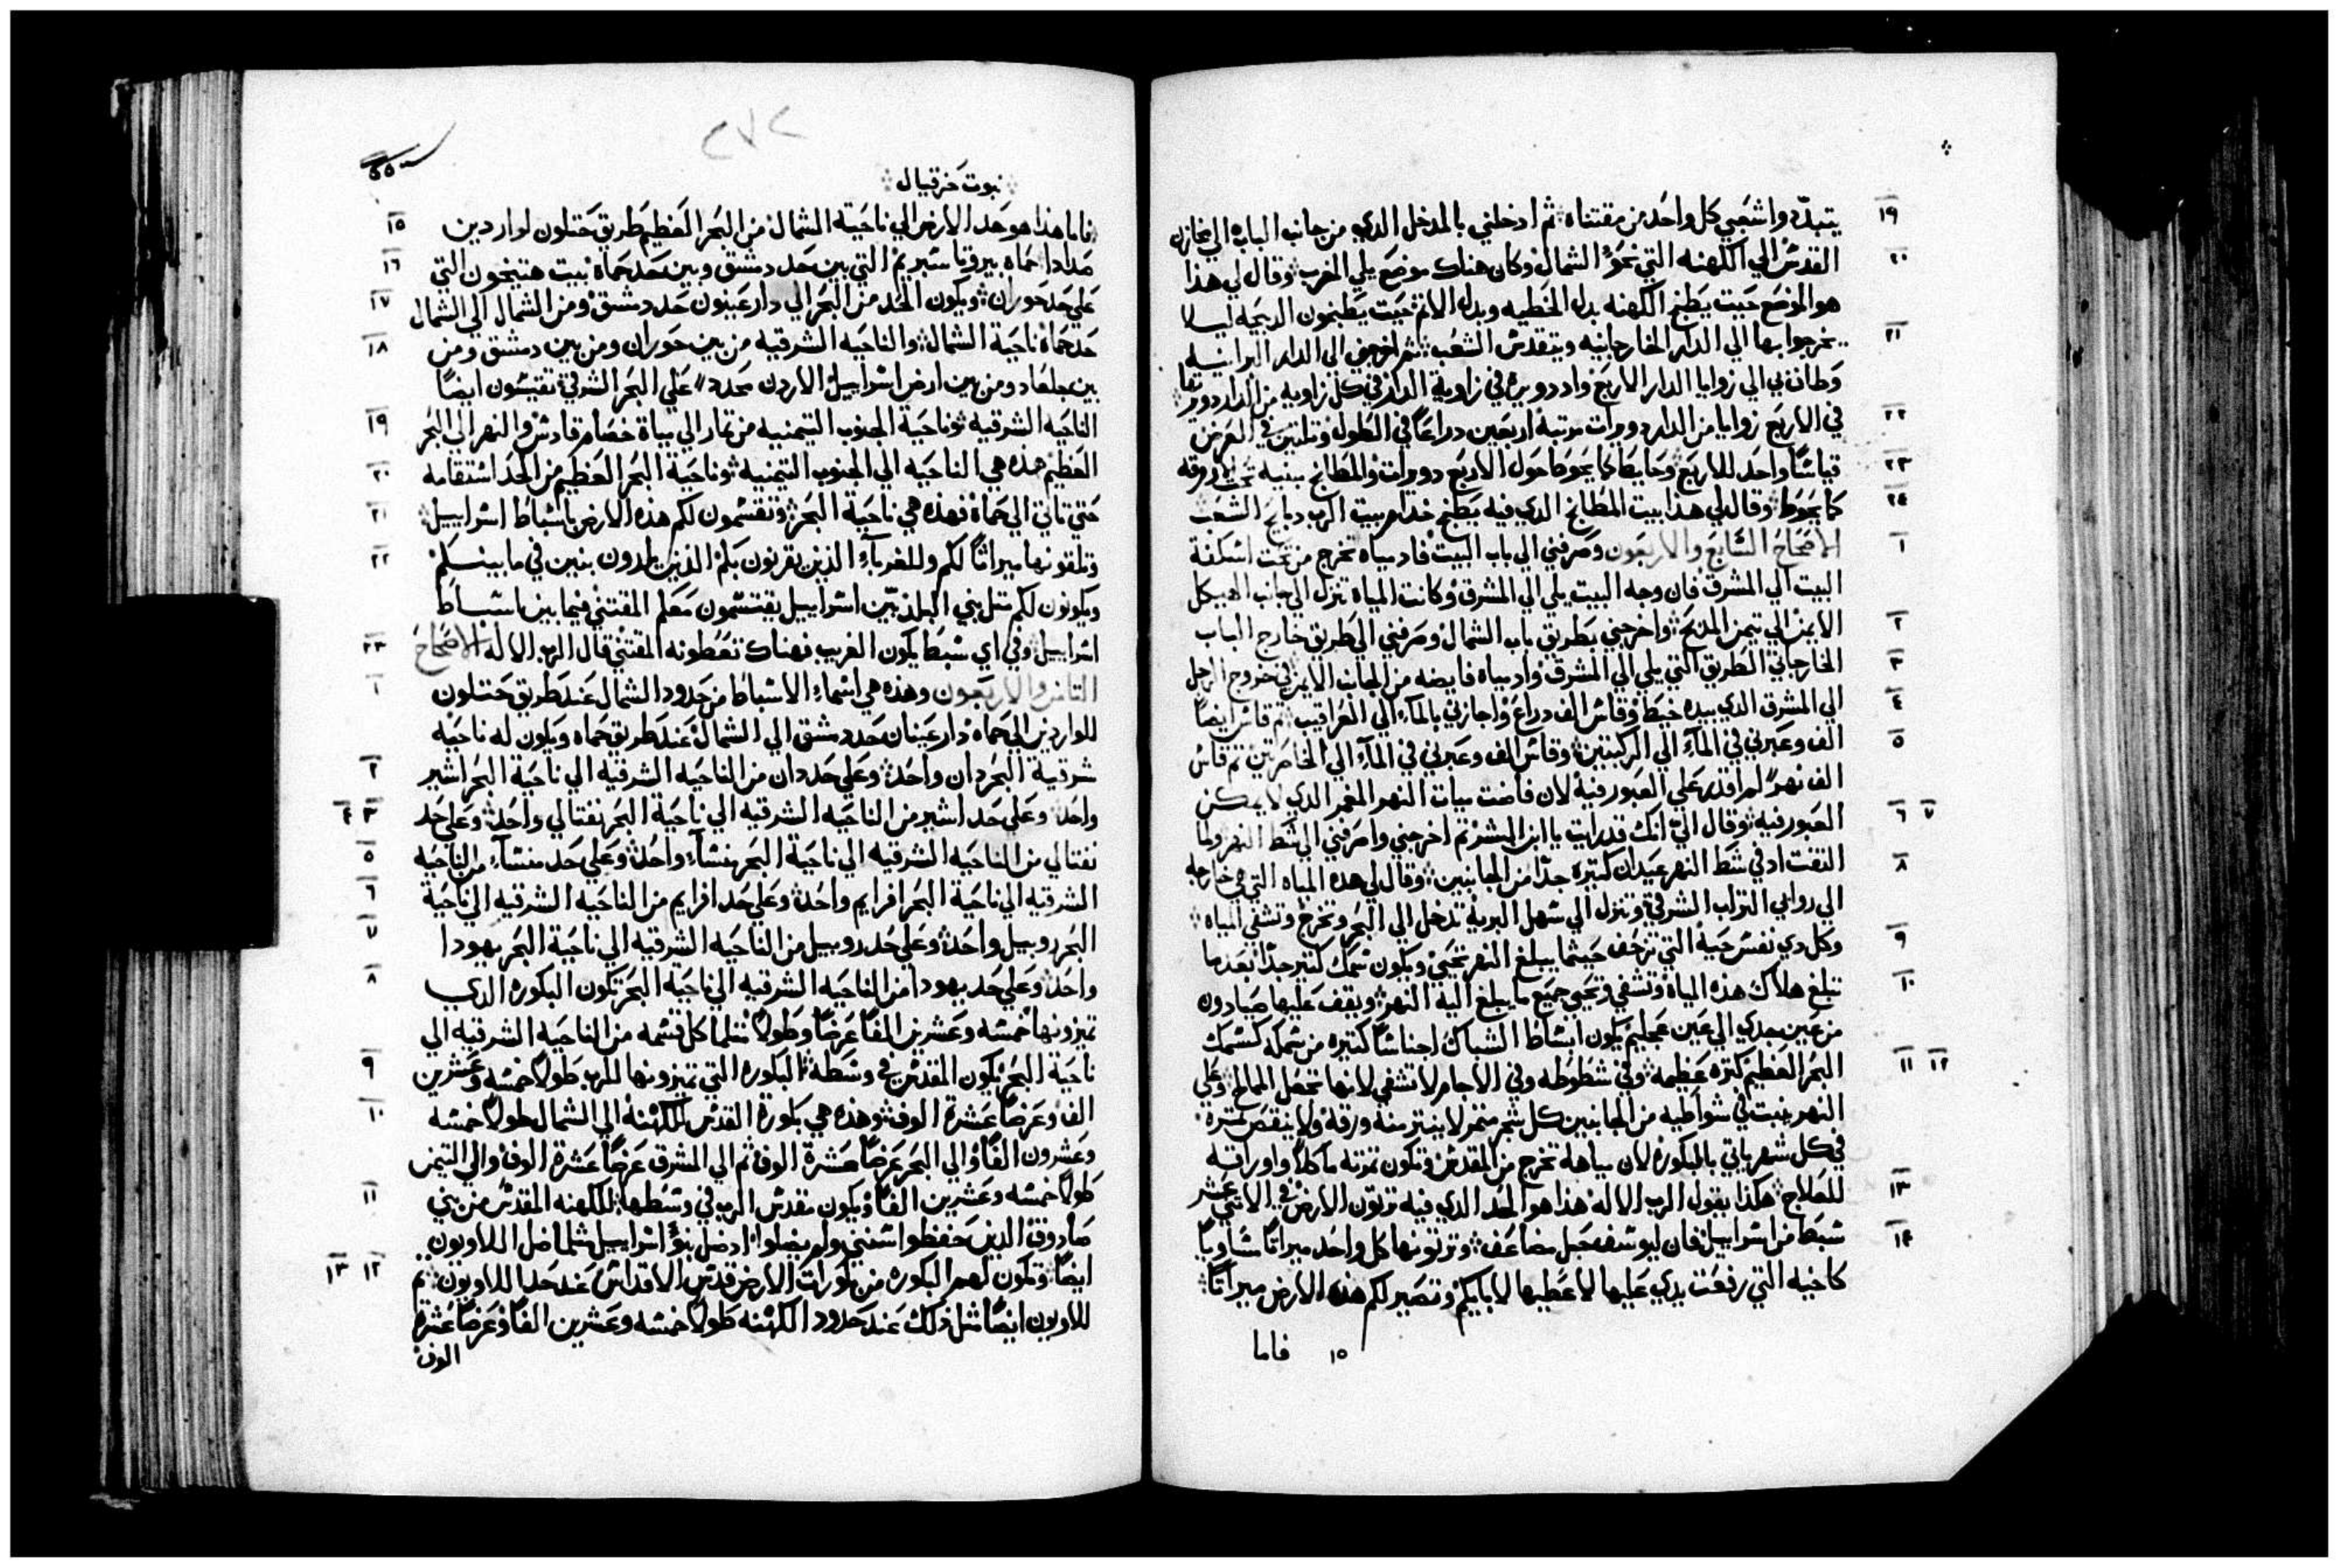 ١٩ يتبدّدوا شعبي كل واحد من مقتناه ثم ادخلني بالمدخل الدي من جانب الباب الي مخازن
٢٠ القدس الي الكهنه التي نحو الشمال وكان هناك موضع يلي المغرب وقال لي هذا
هو الموضع حيت يطبخ الكهنه بدل الخطيه وبدل الاتم حيت يطبخون الدبيحه ليلا
٢١ يخرجوا بها الي الدار الخارجانيه ويتقدس الشعب ثم اخرجني الي الدار البرانيه
وطاف بي الي زوايا الدار الاربع واد دويره في زاوية الدار في كل زاويه من الدار دويرتها
٢٢ في الاربع زوايا من الدار دويرات مرتبه اربعين دراعاً في الطول وتلتين في العرض
٢٣ قياساً واحد للاربع وحايطاً كما يحوط حول الاربع دويرات والمطابخ مبنيه تحت الاروقه
٢٤ كما يحوط وقال لي هذا بيت المطابخ الدي فيه يطبخ خدام بيت الرب دبايح الشعب
١ الاصحاح السابع والاربعون وصرفني الي باب البيت فاد مياه تخرج من تحت اسكفة
البيت الي المشرق فان وجه البيت يلي الي المشرق وكانت المياه تنزل الي جانب الهيكل
٢ الايمن الي تيمن المدبح واخرجني بطريق باب الشمال وصرفني الي طريق خارج الباب
٣ الخارجاني الطريق التي يلي الي المشرق واد مياه فايضه من الجانب الايمن في خروج الرجل
٤ الي المشرق الدي بيده خيط وقاس الف دراع واجازني بالماء الي العراقيب ثم قاس ايضاً
٥ الف وعبرني في الماء الي الركبتين وقاس الف وعبرني في الماء الي الخاصرتين تم قاس
الف نهر لم اقدر علي العبور فيه لان فاضت مياه النهر المغمر الدي لا يمكن
٦ ٧ العبور فيه وقال اليّ انك قد رايت يا ابن البشر تم اخرجني واصرفني الي شط النهر ولما
٨ التفت اد في شط النهر عيدان كتيره جدّا من الجانبين وقال لي هده المياه التي هي خارجه
الي روابي التراب الشرقي وتنزل الي سهل البريه تدخل الي البحر وتخرج وتشفي المياه
٩ وكل دي نفس حيه التي تزحف حيثما يبلغ النهر تحيي ويكون سمك كتير جدّاً بعدما
١٠ تبلغ هناك هذه المياه وتشفي وتحيي جميع ما يبلغ اليه النهر ويقف عليها صيادون
من عين جدي الي عين عجليم يكون انبساط الشباك اجناساً كتيره من سمكه كسمك
١١ ١٢ البحر العظيم كتره عظيمه وفي شطوطه وفي الاجام لا تشفي لانها تجعل الممالح وعلي
النهر ينبت في شواطيه من الجانبين كل شجر متمر لا ينتر منه ورقه ولا ينقص تمره
في كل شهر ياتي بالبكوره لان مياهه تخرج من المقدس وتكون تمرته ماكلاً واوراقه
١٣ للعلاج هكذا يقول الرب الاله هذا هو الحد الدي فيه ترتون الارض في الاتني عشر
١٤ شبط من اسراييل فان ليوسف حبل مضاعف وترتونها كل واحد ميراتاً مساوياً
كاخيه التي رفعت يدي عليها لاعطيها لابايكم وتصير لكم هذه الارض ميراتاً
١٥ فاما
٢٧٢
نبوت حزقيال
١٥ فاما هذا هو حد الارض الي ناحية الشمال من البحر العظيم طريق حتلون لواردين
١٦ صدادا حماه بيروتا سبريم التي بين حد دمشق وبين حد حماه بيت هتيخون التي
١٧ علي حد حوران ويكون الحد من البحر الي دار عينون حد دمشق ومن الشمال الي الشمال
١٨ حد حماه ناحية الشمال والناحيه الشرقيه من بين حوران ومن بين دمشق ومن
بين جلعاد ومن بين ارض اسراييل الاردن محدد علي البحر الشرقي تقتسون ايضاً
١٩ الناحيه الشرقيه وناحية الجنوب التيمنيه من تمار الي مياة خصام قادش والنهر الي البحر
٢٠ العظيم هذه هي الناحيه الي الجنوب التيمنيه وناحية البحر العظيم من الحد استقامه
٢١ حتي تاتي الي حماه فهذه هي ناحية البحر وتقتسمون لكم هذه الارض باسباط اسراييل
٢٢ وتلقونها ميراثاً لكم وللغرباء الذين يقربون بكم الذين يلدون بنين في ما بينكم
ويكونون لكم متل بني البلد بين اسراييل يقتسمون معكم المقتني فيما بين اسباط
٢٣ اسراييل وفي اي سبط يكون الغريب فهناك تعطونه المقتني قال الرب الاله الاصحاح
١ التامن والاربعون وهذه هي اسماء الاسباط من حدود الشمال عند طريق حتلون
للواردين الي حماه دار عينان حد دمشق الي الشمال عند طريق حماه ويكون له ناحيه
٢ شرقية البحر دان واحد وعلي حد دان من الناحيه الشرقيه الي ناحية البحر اشير
٣ ٤ واحد وعلي حد اشير من الناحيه الشرقيه الي ناحية البحر نفتالي واحد وعلي حد
٥ نفتالي من الناحيه الشرقيه الي ناحية البحر منساء واحد وعلي حد منساء من الناحيه
٦ الشرقيه الي ناحية البحر افرايم واحد وعلي حد افرايم من الناحيه الشرقيه الي ناحية
٧ البحر روبيل واحد وعلي حد روبيل من الناحيه الشرقيه الي ناحية البحر يهودا
٨ واحد وعلي حد يهودا من الناحيه الشرقيه الي ناحية البحر تكون البكوره الدي
تميزونها خمسه وعشرين الفاً عرضاً وطولاً متلما كل قسمه من الناحيه الشرقيه الي
٩ ناحية البحر يكون المقدس في وسطه البكوره التي تميزونها للرب طولاً خمسه وعشرين
١٠ الف وعرضاً عشرة الوف وهذه هي بكورة القدس للكهنه الي الشمال طولاً خمسه
وعشرون الفاً والي البحر عرضاً عشرة الوف ثم الي المشرق عرضاً عشرة الوف والي التيمن
١١ طولاً خمسه وعشرين الفاً ويكون مقدس الرب في وسطها للكهنه المقدس من بني
صادوق الذين حفظوا سنني ولم يضلوا اد ضل بنو اسراييل متلما ضل اللاويون
١٢ ١٣ ايضاً وتكون لهم البكوره من بكورات الارض قدس الاقداس عند حد اللاويون تم
للاويون ايضاً متل ذلك عند حدود الكهنه طولاً خمسه وعشرين الفاً وعرضاً عشرة
الوف